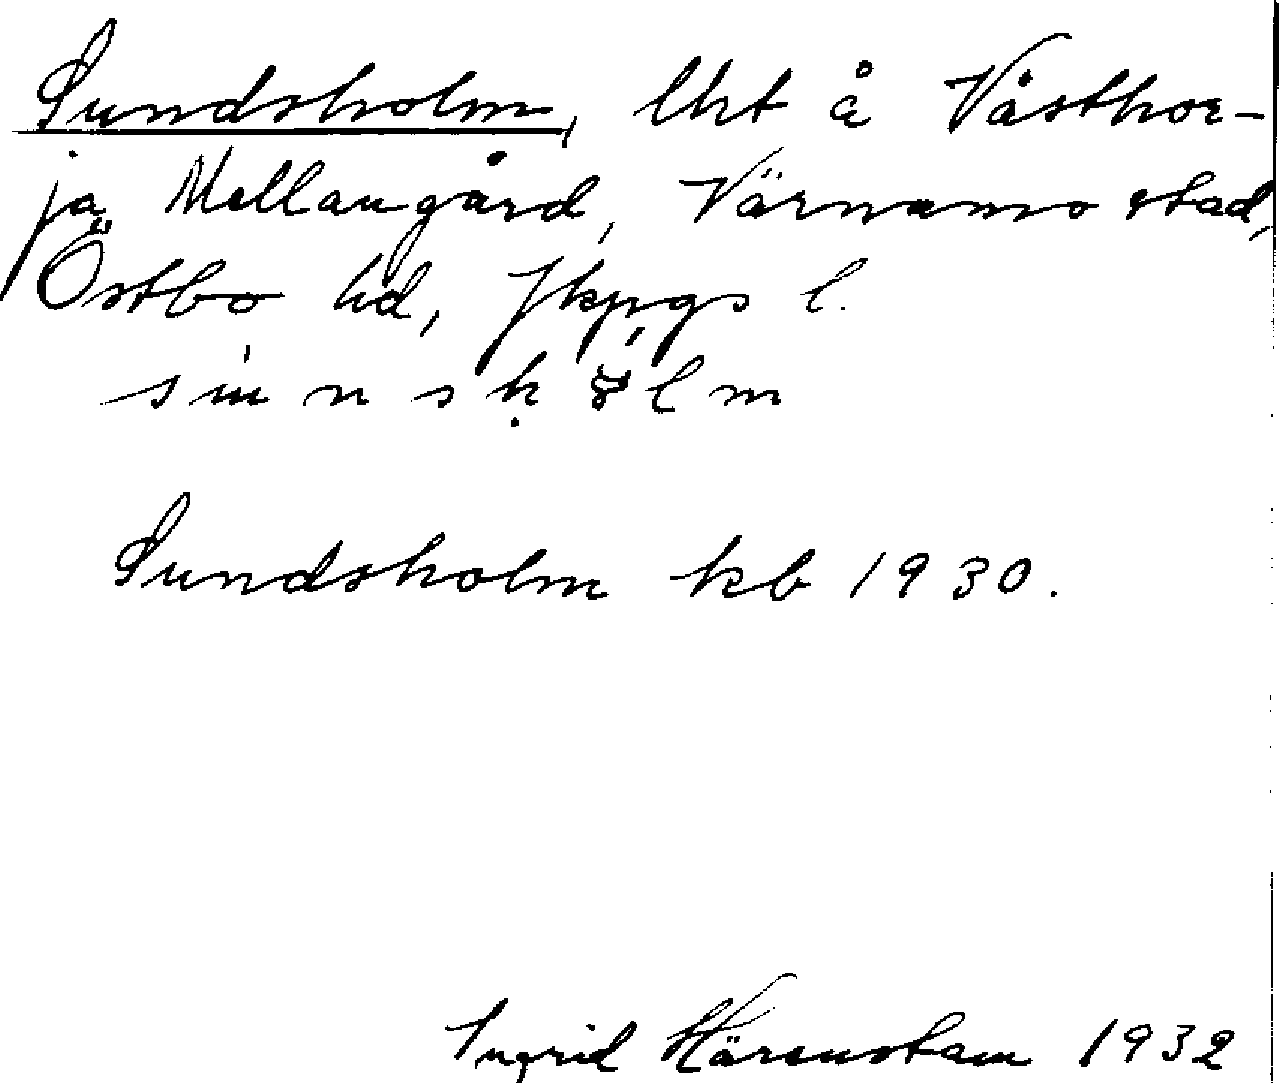 Sundsholm, lht å Västhor-
ja Mellangård, Värnamo stad,
Östbo hd, Jkpgs l.
Sundsholm kb 1930.
Ingrid Härenstam 1932